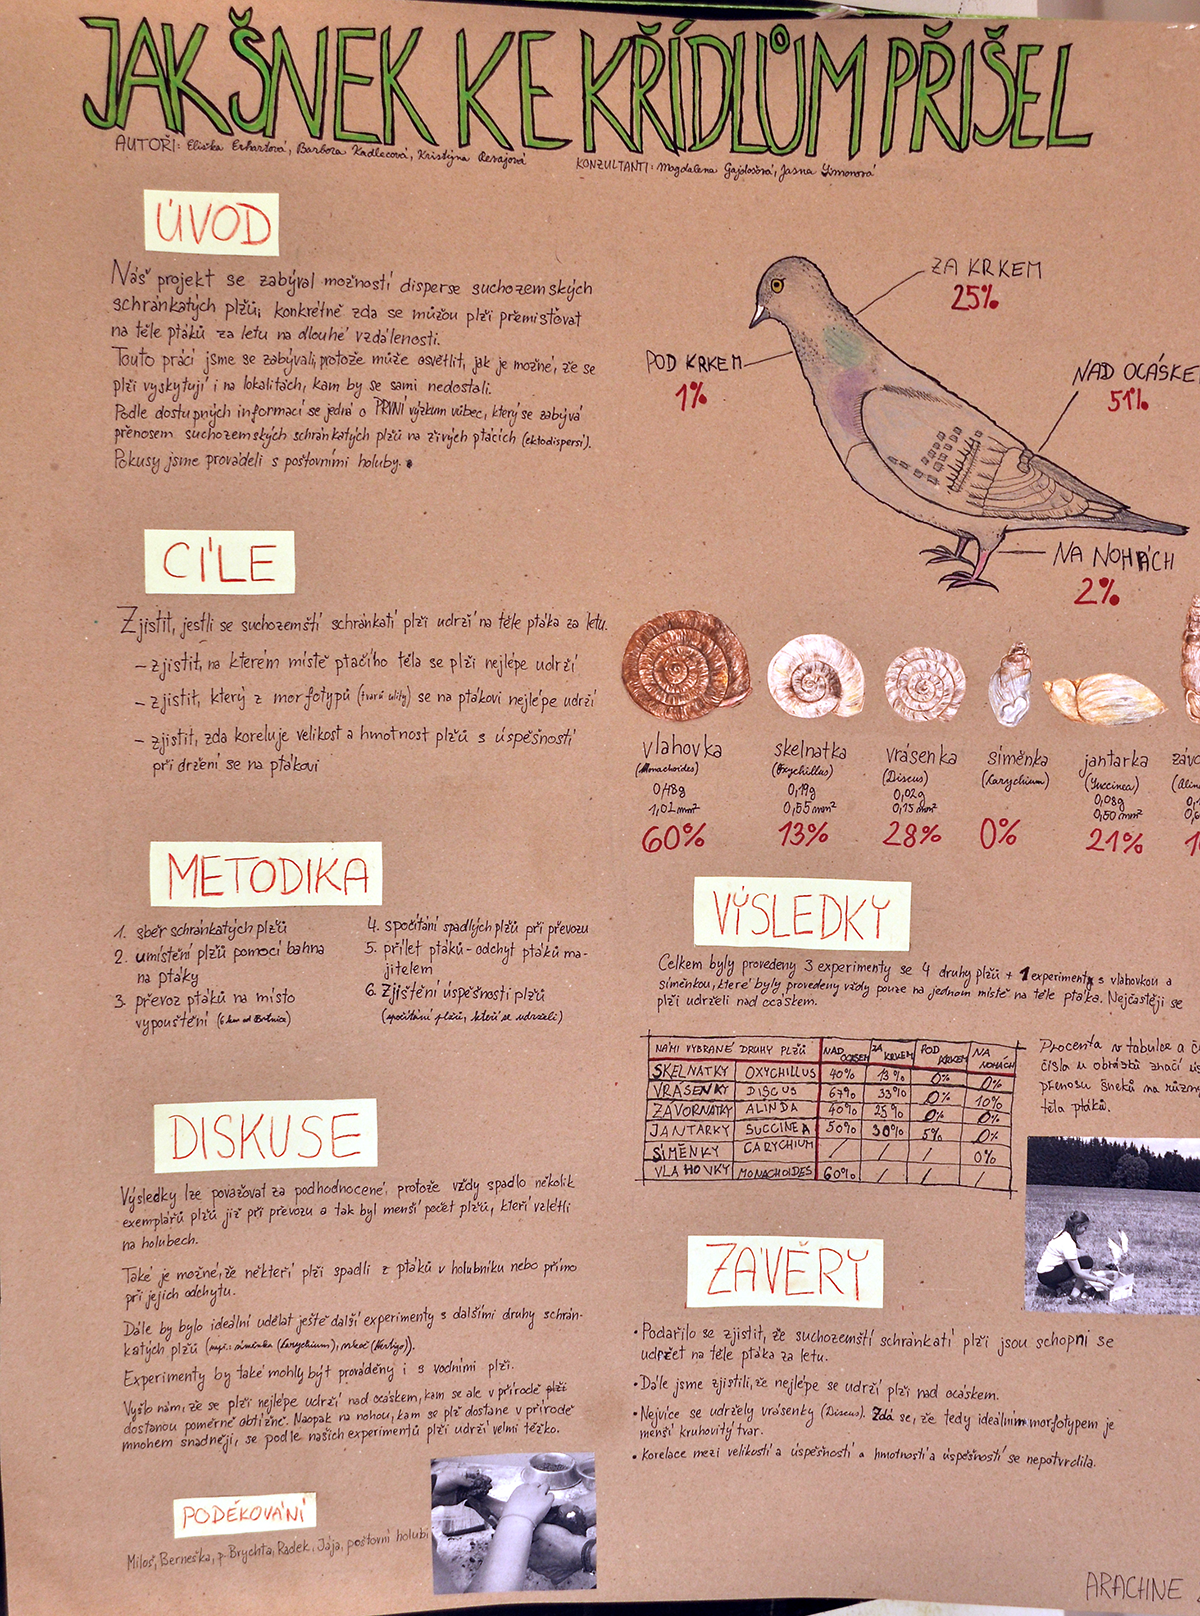 JAK ŠNEK KE KŘÍDLŮM PŘIŠEL
AUTOŘI: Eliška Erhartová, Barbora Kadlecová, Kristýna
KONZULTANTI: Magdalena Gajdošová, Jasna Simonová
ÚVOD
Náš projekt se zabýval možností disperse suchozemských
schránkatých plžů; konkrétně zda se můžou plži přemisťovat
na těle ptáků za letu na dlouhé vzdálenosti.
Touto prací jsme se zabývali, protože může osvětlit, jak je možné, že se
plži vyskytují i na lokalitách, kam by se sami nedostali.
Podle dostupných informací se jedná o PRVNÍ výzkum vůbec, který se zabývá
přenosem suchozemských schránkatých plžů na živých ptácích (ektodispersí).
Pokusy jsme prováděli s poštovními holuby.
ZA KRKEM
25%
POD KRKEM
1%
NAD OCÁSKE
51%
NA NOHÁCH
2%
CÍLE
Zjistit, jestli se suchozemští schránkatí plži udrží na těle ptáka za letu.
– zjistit, na kterém místě ptačího těla se plži nejlépe udrží
– zjistit, který z morfotypů (tvarů ulity) se na ptákovi nejlépe udrží
– zjistit, zda koreluje velikost a hmotnost plžů s úspěšností
při držení se na ptákovi
vlahovka
(Monachoides)
0,48g
1,02mm²
60%
skelnatka
(Oxychillus)
0,19g
0,55mm²
13%
vrásenka
(Discus)
0,02g
0,15mm²
28%
síměnka
(Carychium)
0%
jantarka
(Succinea)
0,08g
0,50mm²
21%
závo
(Alin
METODIKA
1. sběr schránkatých plžů
2. umístění plžů pomocí bahna
na ptáky
3. převoz ptáků na místo
vypouštění (6 km od Brtnice)
4. spočítání spadlých plžů při převozu
5. přílet ptáků - odchyt ptáků ma-
jitelem
6. zjištění úspěšnosti plžů
(spočítání plžů, kteří se udrželi)
VÝSLEDKY
Celkem byly provedeny 3 experimenty se 4 druhy plžů + 1 experiment s vlahovkou a
síměnkou, které byly provedeny vždy pouze na jednom místě na těle ptáka. Nejčastěji se
plži udrželi nad ocáskem.
NÁMI VYBRANÉ DRUHY PLŽŮ NAD OCÁSEM ZA KRKEM POD KRKEM NA NOHÁCH
SKELNATKY OXYCHILLUS 40% 13% 0% 0%
VRÁSENKY DISCUS 67% 33% 0% 10%
ZÁVORNATKY ALINDA 40% 25% 0% 0%
JANTARKY SUCCINEA 50% 30% 5% 0%
SÍMĚNKY CARYCHIUM / / / 0%
VLAHOVKY MONACHOIDES 60% / / /
Procenta v tabulce a č
čísla u obrázků značí ús
přenosu šneků na různý
těla ptáků.
DISKUSE
Výsledky lze považovat za podhodnocené, protože vždy spadlo několik
exemplářů plžů již při převozu a tak byl menší počet plžů, kteří vzlétli
na holubech.
Také je možné, že někteří plži spadli z ptáků v holubníku nebo přímo
při jejich odchytu.
Dále by bylo ideální udělat ještě další experimenty s dalšími druhy schrán-
katých plžů (např.: síměnka (Carychium), vrkoč (Vertigo)).
Experimenty by také mohly být prováděny i s vodními plži.
Vyšlo nám, že se plži nejlépe udrží nad ocáskem, kam se ale v přírodě plži
dostanou poměrně obtížně. Naopak na nohou, kam se plž dostane v přírodě
mnohem snadněji, se podle našich experimentů plži udrží velmi těžko.
ZÁVĚRY
• Podařilo se zjistit, že suchozemští schránkatí plži jsou schopni se
udržet na těle ptáka za letu.
• Dále jsme zjistili, že nejlépe se udrží plži nad ocáskem.
• Nejvíce se udržely vrásenky (Discus). Zdá se, že tedy ideálním morfotypem je
menší kruhovitý tvar.
• Korelace mezi velikostí a úspěšností a hmotností a úspěšností se nepotvrdila.
PODĚKOVÁNÍ
Miloš, Berneška, p. Brychta, Radek, Jája, poštovní holubi
ARACHNE